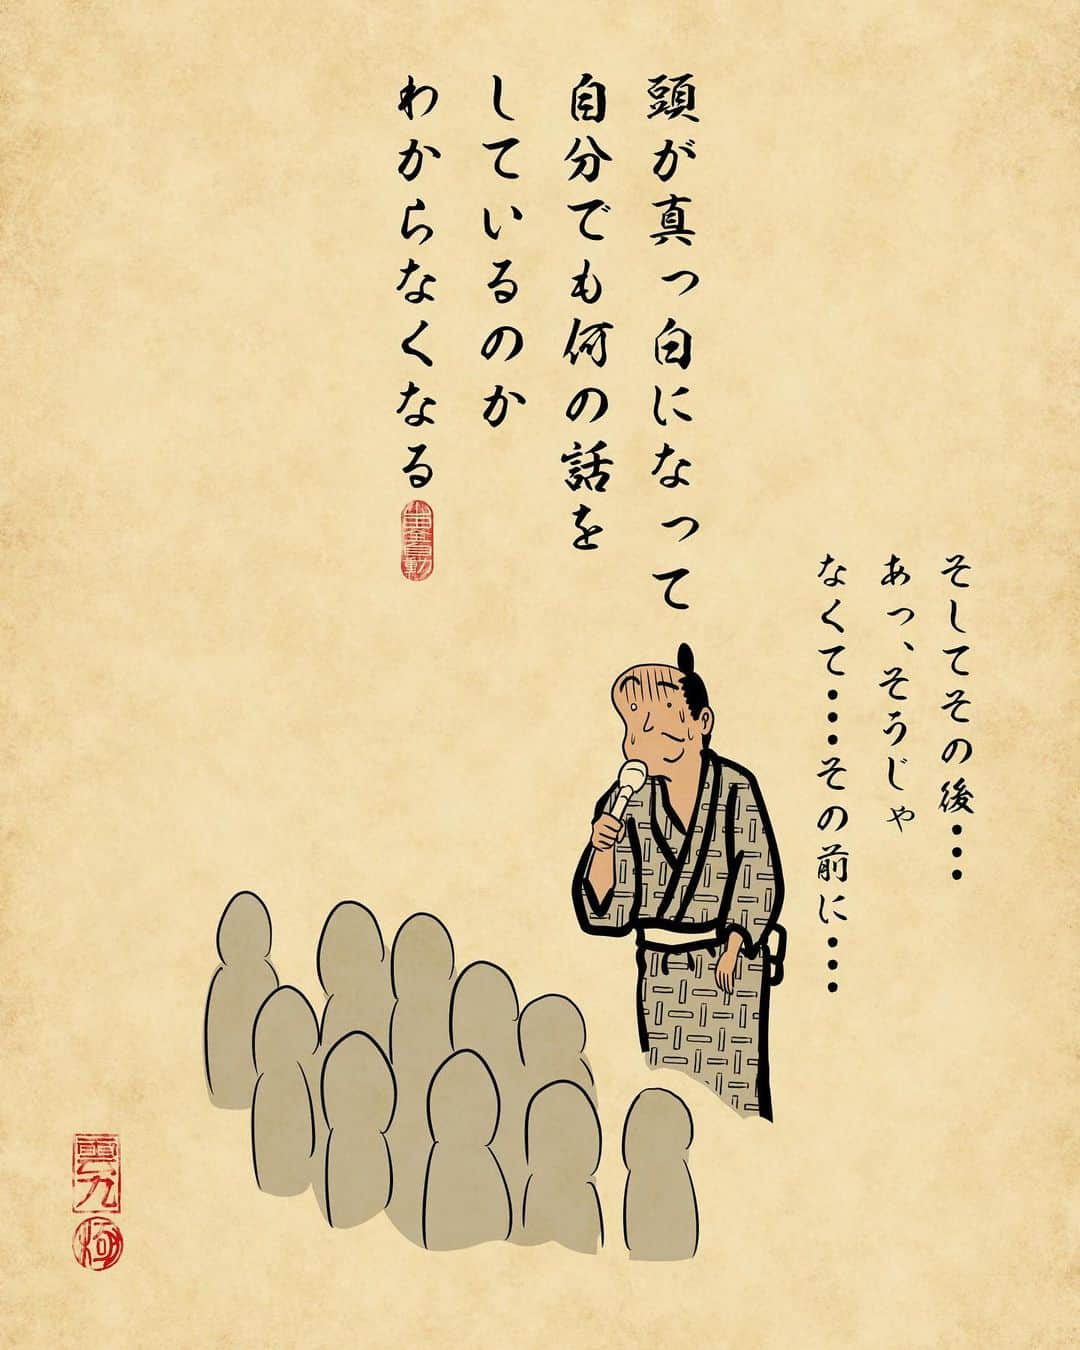 頭が真っ白になって
自分でも何の話を
しているのか
わからなくなる
そしてその後・・・
あっ、そうじゃ
なくて・・・その前に・・・